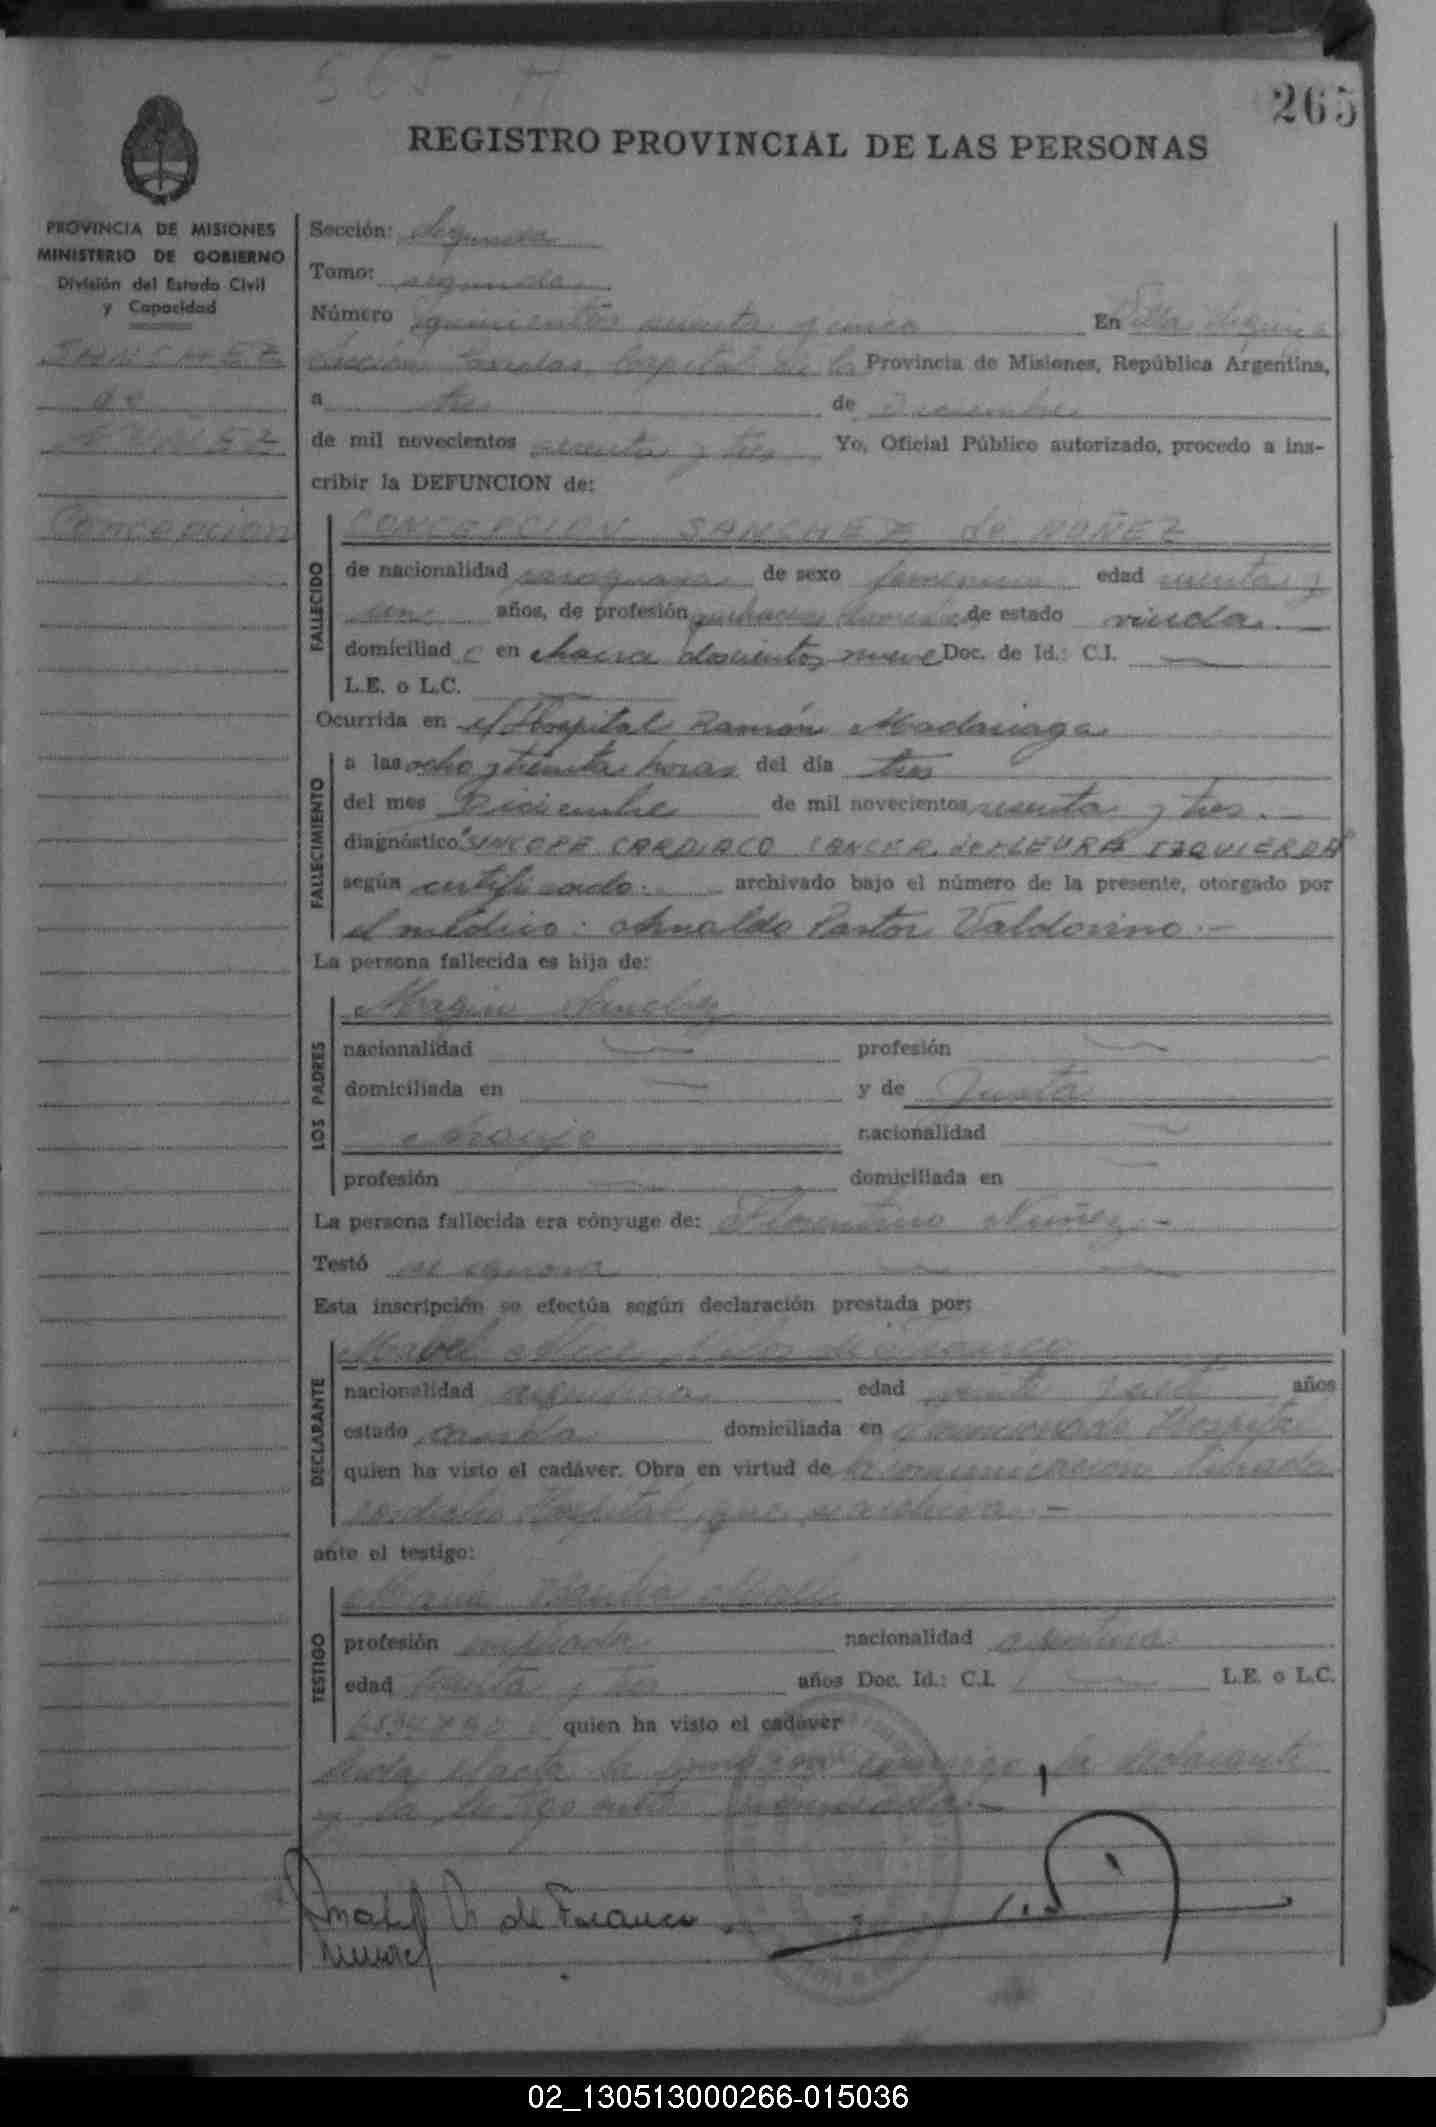 565 H
265
REGISTRO PROVINCIAL DE LAS PERSONAS
PROVINCIA DE MISIONES
MINISTERIO DE GOBIERNO
División del Estado Civil
y Capacidad
SANCHEZ
de
NUÑEZ
Concepcion
Sección: Segunda
Tomo: segundo
Número quinientos sesenta y cinco En Villa
Capital de la Provincia de Misiones, República Argentina,
a tres de Diciembre
de mil novecientos sesenta y tres Yo, Oficial Público autorizado, procedo a ins-
cribir la DEFUNCION de:
FALLECIDO
CONCEPCION SANCHEZ de NUÑEZ
de nacionalidad paraguaya de sexo femenino edad sesenta y
un años, de profesión quehaceres domésticos de estado viuda.—
domiciliad a en chacra doscientos nueve Doc. de Id.: C.I. —
L.E. o L.C. —
Ocurrida en el Hospital Ramón Madariaga
FALLECIMIENTO
a las ocho y treinta horas del día tres
del mes Diciembre de mil novecientos sesenta y tres.—
diagnóstico "SINCOPE CARDIACO CANCER de PLEURA IZQUIERDA"
según certificado.— archivado bajo el número de la presente, otorgado por
el médico: Arnaldo Pastor Valdovino.—
La persona fallecida es hija de:
LOS PADRES
Sanchez
nacionalidad — profesión —
domiciliada en — y de Justa
Araujo nacionalidad —
profesión — domiciliada en —
La persona fallecida era cónyuge de: Florentino Nuñez.—
Testó se ignora — —
Esta inscripción se efectúa según declaración prestada por:
DECLARANTE
Mabel de Franco
nacionalidad argentina edad veinte y años
estado casada domiciliada en el mencionado Hospital
quien ha visto el cadáver. Obra en virtud de la comunicación librada
por dicho Hospital, que se archiva.—
ante el testigo:
TESTIGO
profesión empleada nacionalidad argentina
edad treinta y tres años Doc. Id.: C.I. — L.E. o L.C.
quien ha visto el cadáver
Leída el acta la firman conmigo, la declarante
y la testigo
Mabel V. de Franco
02_130513000266-015036